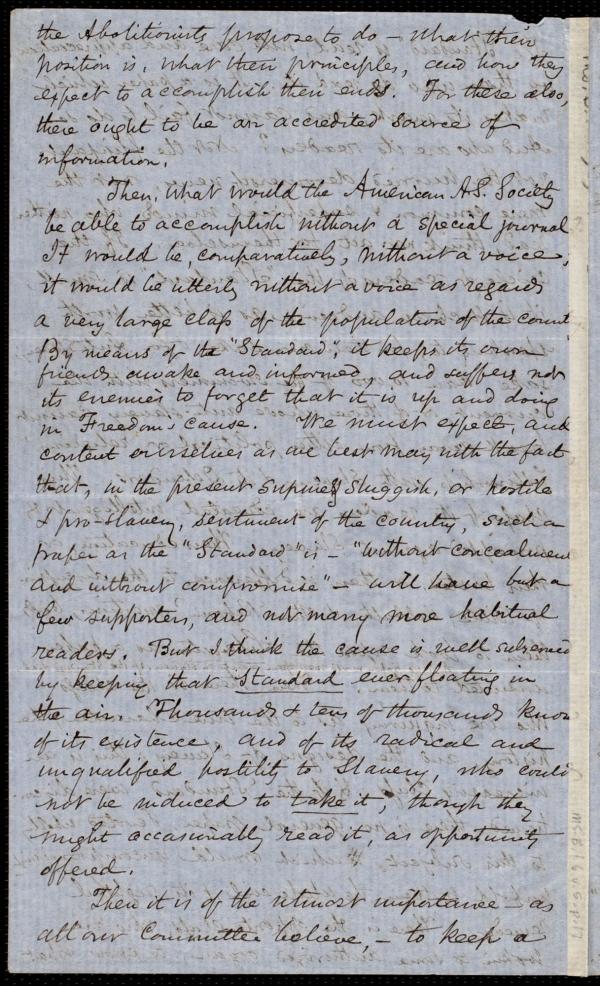 the Abolitionists propose to do – what their
position is, what their principles, and how they
expect to accomplish their ends. For these also,
there ought to be an accredited source of
information.
Then, what would the American A.S. Society
be able to accomplish without a special journal
It would be, comparatively, without a voice,
it would be utterly without a voice as regards
a very large class of the population of the count
By means of the "Standard", it keeps its own
friends awake and informed, and suffers not
its enemies to forget that it is up and doing
in Freedom's cause. We must expect, and
content ourselves as we best may, with the fact
that, in the present supine, sluggish, or hostile
& pro-slavery, sentiment of the country, such a
paper as the "Standard" is – "without concealment
and without compromise" – will have but a
few supporters, and not many more habitual
readers. But I think the cause is well subserved
by keeping that Standard ever floating in
the air. Thousands & tens of thousands know
of its existence, and of its radical and
unqualified hostility to Slavery, who could
not be induced to take it, though they
might occasionally read it, as opportunity
offered.
Then it is of the utmost importance – as
all our Committee believe, – to keep a